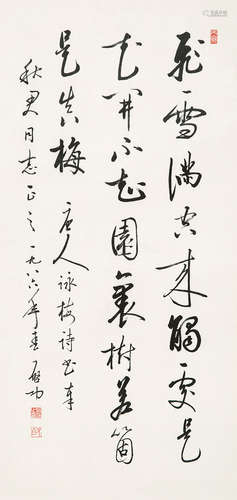 飛雪滿空来觸處是
花開不知園裏樹若箇
是真梅 唐人詠梅诗书奉
秋同志正之一九八六年春啟功